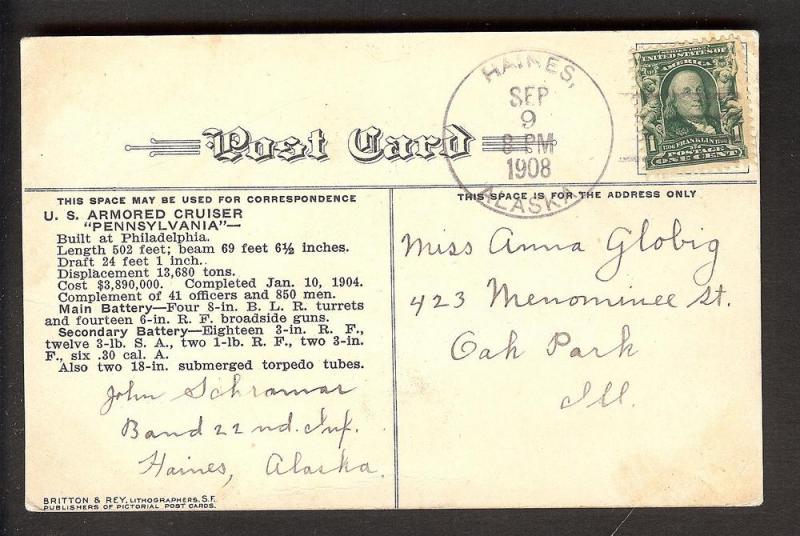 HAINES,
SEP
9
8 PM
1908
ALASKA
SERIES 1902
UNITED STATES OF
AMERICA
1 FRANKLIN 1
POSTAGE
ONE CENT
Post Card
THIS SPACE MAY BE USED FOR CORRESPONDENCE
U. S. ARMORED CRUISER
"PENNSYLVANIA"—
Built at Philadelphia.
Length 502 feet; beam 69 feet 6½ inches.
Draft 24 feet 1 inch.
Displacement 13,680 tons.
Cost $3,890,000. Completed Jan. 10, 1904.
Complement of 41 officers and 850 men.
Main Battery—Four 8-in. B. L. R. turrets
and fourteen 6-in. R. F. broadside guns.
Secondary Battery—Eighteen 3-in. R. F.,
twelve 3-lb. S. A., two 1-lb. R. F., two 3-in.
F., six .30 cal. A.
Also two 18-in. submerged torpedo tubes.
John Schramar
Band 22nd. Inf.
Haines, Alaska.
BRITTON & REY, LITHOGRAPHERS, S.F.
PUBLISHERS OF PICTORIAL POST CARDS.
THIS SPACE IS FOR THE ADDRESS ONLY
Miss Anna Globig
423 Menominee St.
Oak Park
Ill.